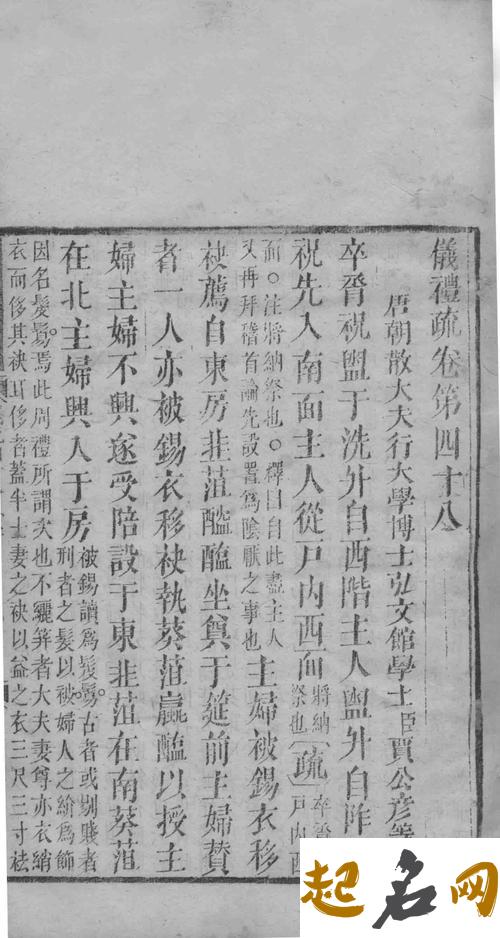 儀禮疏卷第四十八
唐朝散大夫行大學博士弘文館學士臣賈公彥等
卒脀祝盥于洗升自西階主人盥升自阼
祝先入南面主人從戶內西面將納祭也疏卒脀戶內西
面○注將納祭也○釋曰自此盡主人又再拜稽首論先設置爲陰厭之事也主婦被錫衣移
袂薦自東房韭菹醓醢坐奠于筵前主婦贊
者一人亦被錫衣移袂執葵菹蠃醢以授主
婦主婦不興遂受陪設于東韭菹在南葵菹
在北主婦興入于房被錫讀爲髲鬄古者或剔賤者刑者之髮以被婦人之紒爲飾
因名髲鬄焉此周禮所謂次也不纚笄者大夫妻尊亦衣綃
衣而侈其袂耳侈者蓋半士妻之袂以益之衣三尺三寸袪
起名网